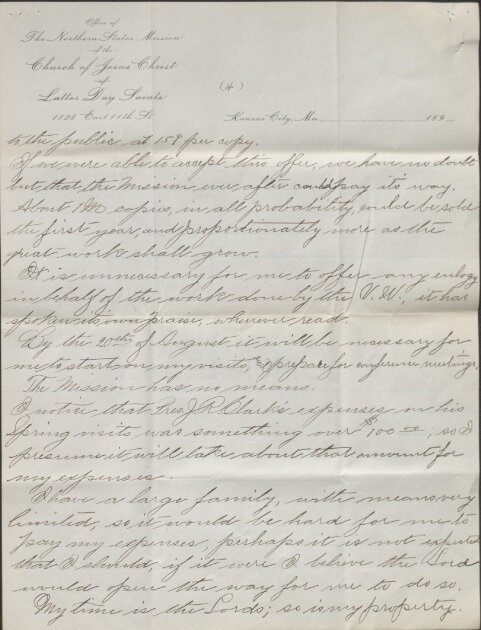 Office of
The Northern States Mission
of the
Church of Jesus Christ
of
Latter Day Saints
1825 East 11th St.
(4)
Kansas City, Mo. 189
to the public at 15¢ per copy.
If we were able to accept this offer, we have no doubt
but that the Mission ever after could pay its way.
About copies, in all probability, would be sold
the first year, and proportionately more as the
great work shall grow.
It is unnecessary for me to offer any eulogy
in behalf of the work done by the V. W.; it has
spoken its own praise, wherever read.
By the 20th of August it will be necessary for
me to start on my visits, & prepare for conference meetings.
The Mission has no means.
I notice that Pres. J. R. Clark's expenses on his
Spring visits was something over $100.00; so I
presume it will take about that amount for
my expenses.
I have a large family, with means very
limited, so it would be hard for me to
pay my expenses, perhaps it is not expected
that I should, if it were I believe the Lord
would open the way for me to do so.
My time is the Lords; so is my property.